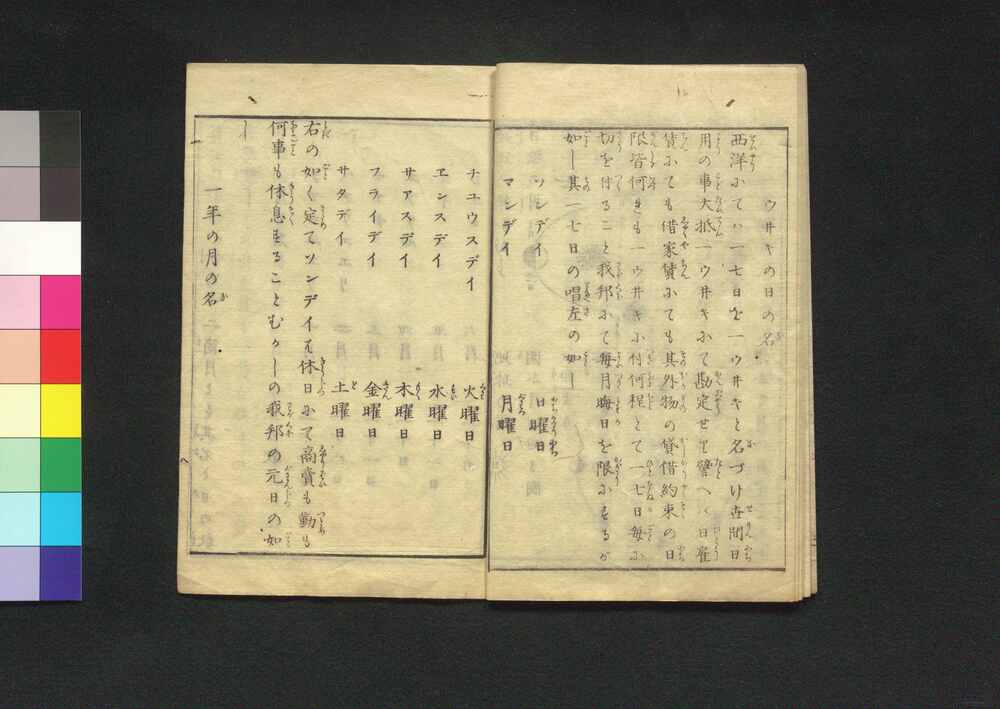 ウ井キの日の名
西洋にてハ一七日を一ウ井キと名づけ世間日
用の事大抵一ウ井キにて勘定せり譬へバ日雇
賃にても借家賃にても其外物の貸借約束の日
限皆何れも一ウ井キに付何程とて一七日毎に
切を付ること我邦にて毎月晦日を限にするが
如し其一七日の唱左の如し
ソンデイ 日曜日
マンデイ 月曜日
チユウスデイ 火曜日
ヱンスデイ 水曜日
サアスデイ 木曜日
フライデイ 金曜日
サタデイ 土曜日
右の如く定てソンデイは休日にて商賣も勤も
何事も休息することむかしの我邦の元日の如
し
一年の月の名